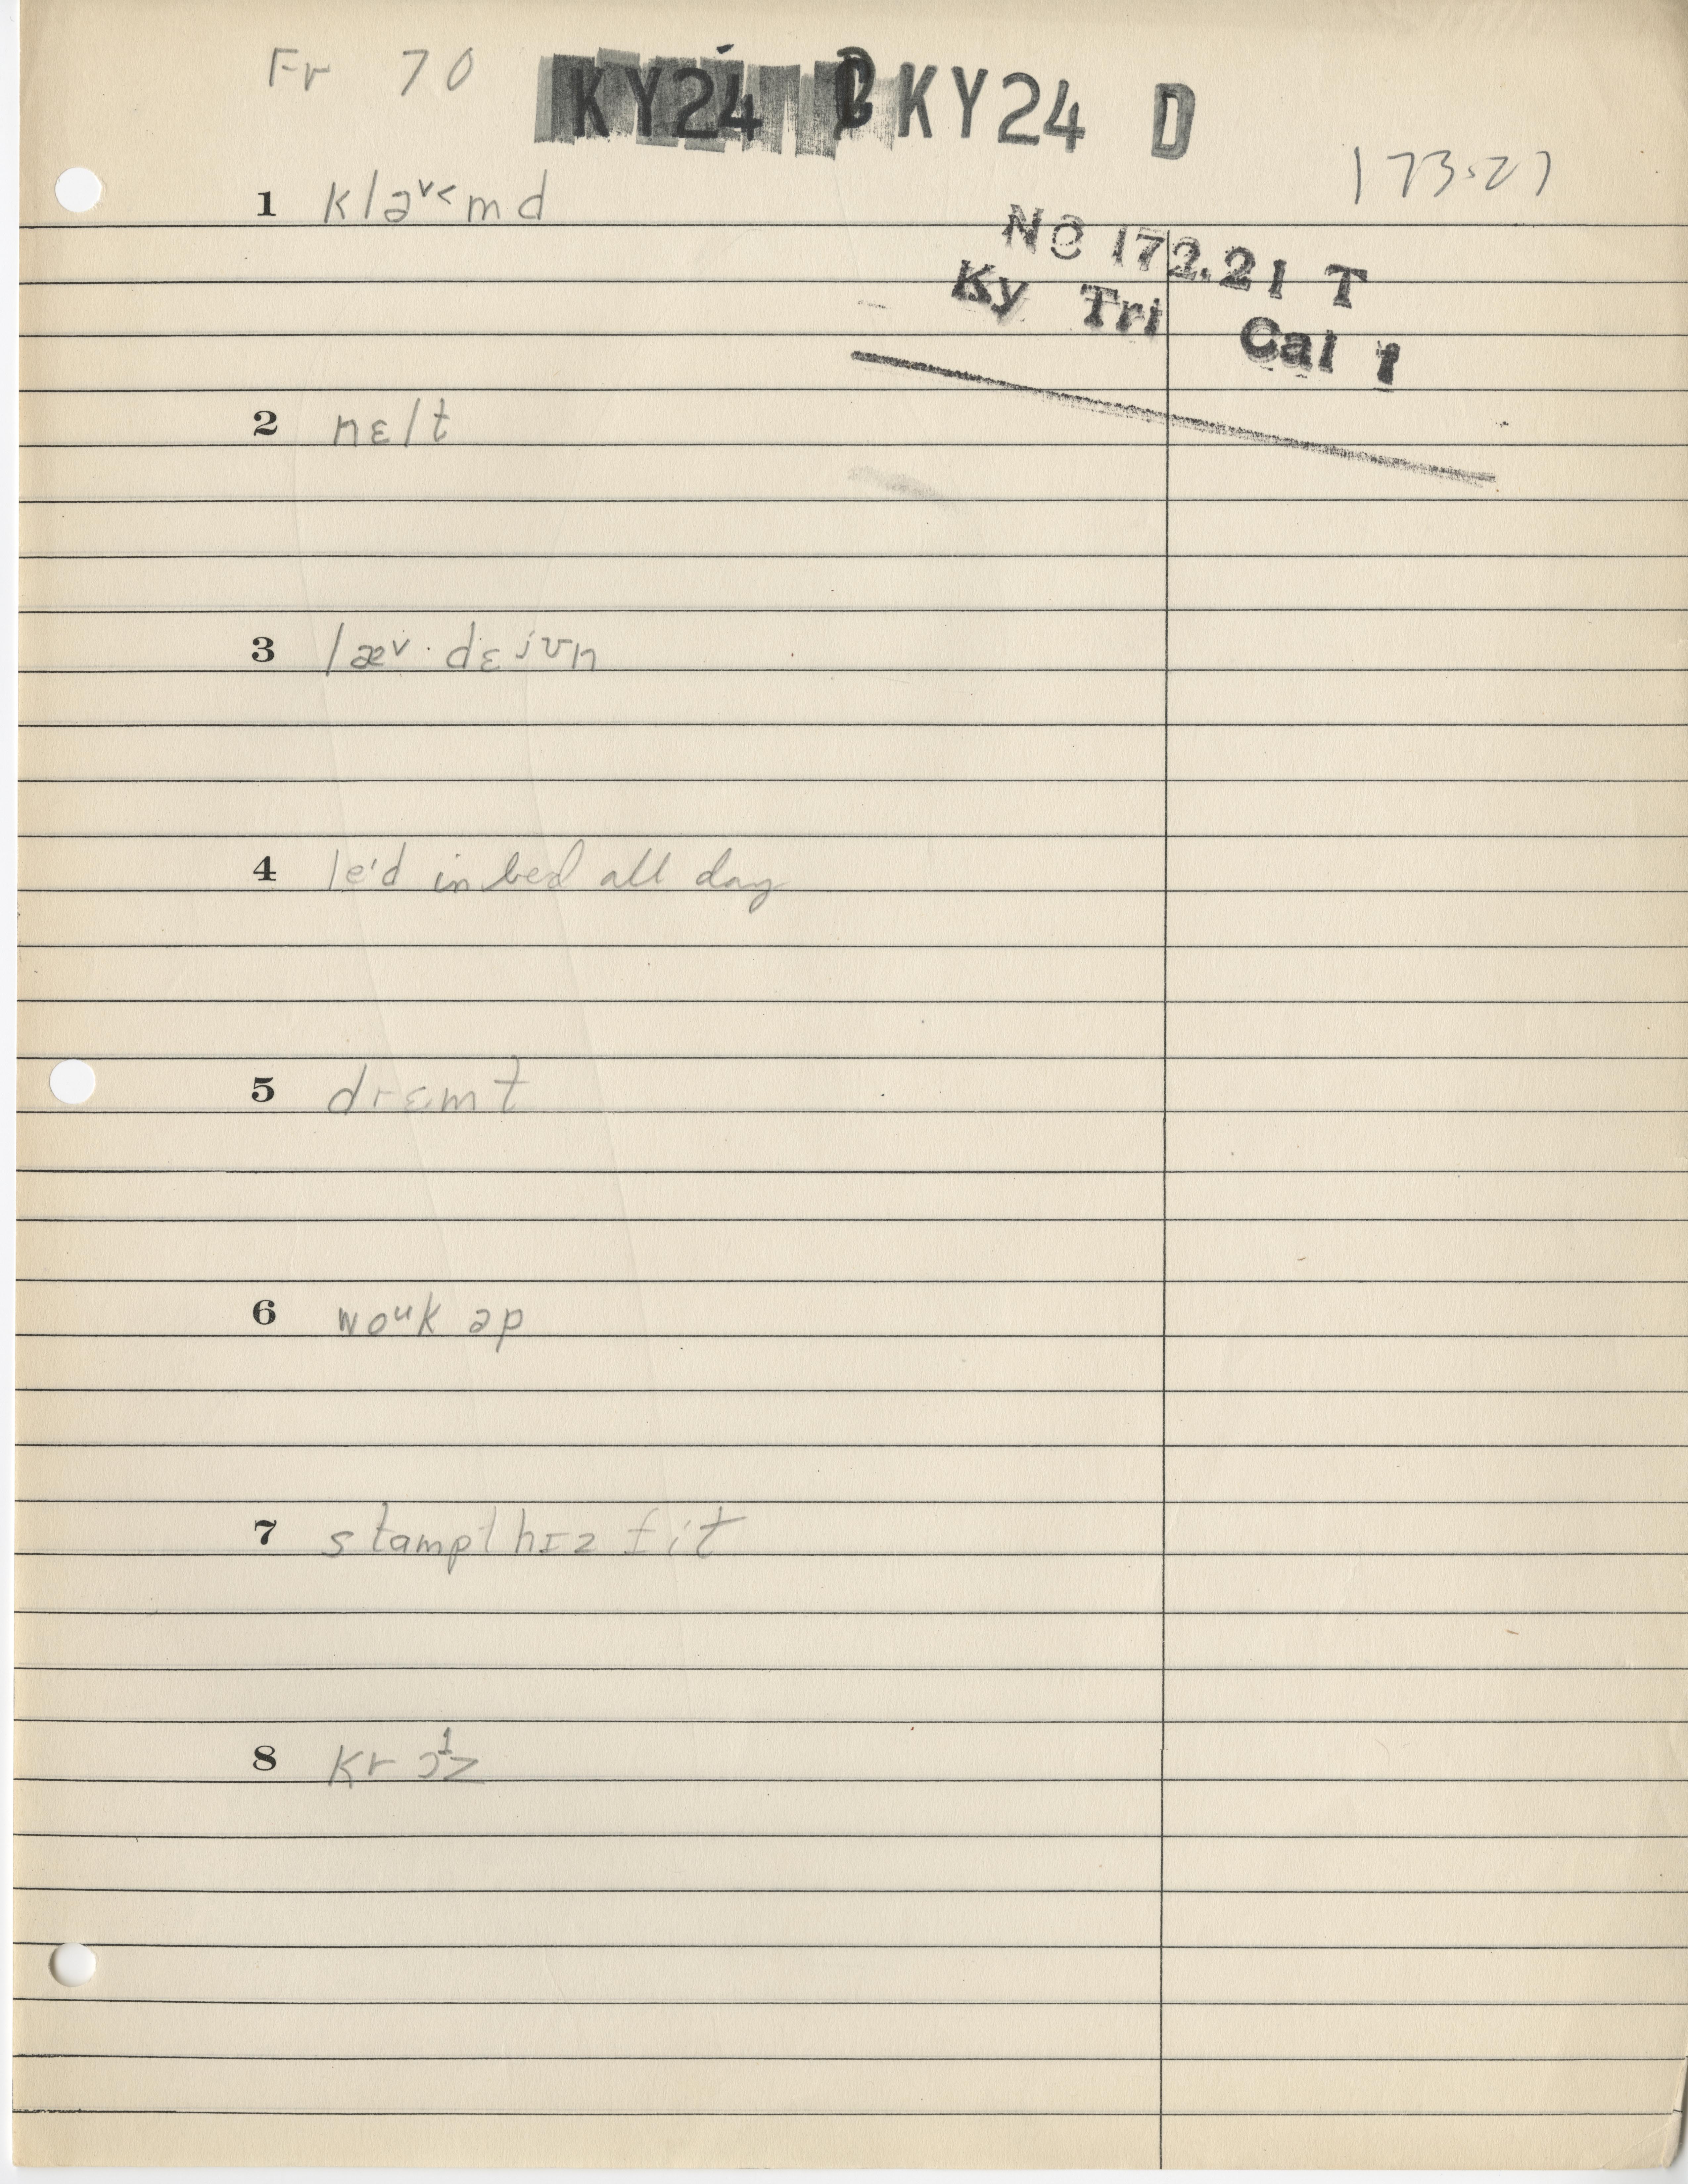 Fr 70 KY24 KY24 D
173.27
No 172.21 T
Ky Tri Cal 1
1 klaᵛ˂md
2 nɛlt
3 læᵛ· dɛʲʊn
4 le'd in bed all day
5 drɛmt
6 woᵘk əp
7 stampt hɪz fit
8 krɔ¹z